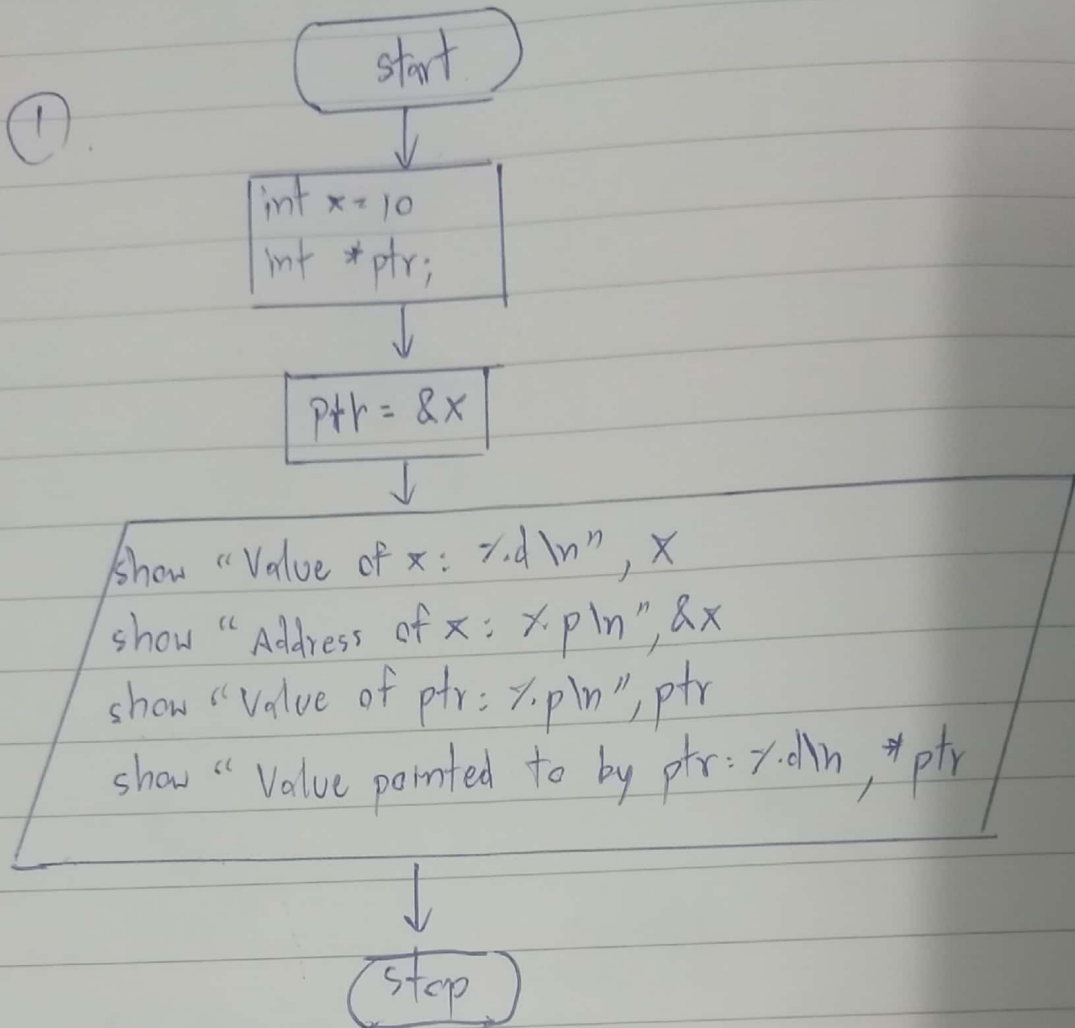 start
①.
int x = 10
int *ptr;
ptr = &x
show "Value of x: %d\n", x
show "Address of x: %p\n", &x
show "Value of ptr: %p\n", ptr
show "Value pointed to by ptr: %d\n, *ptr
stop